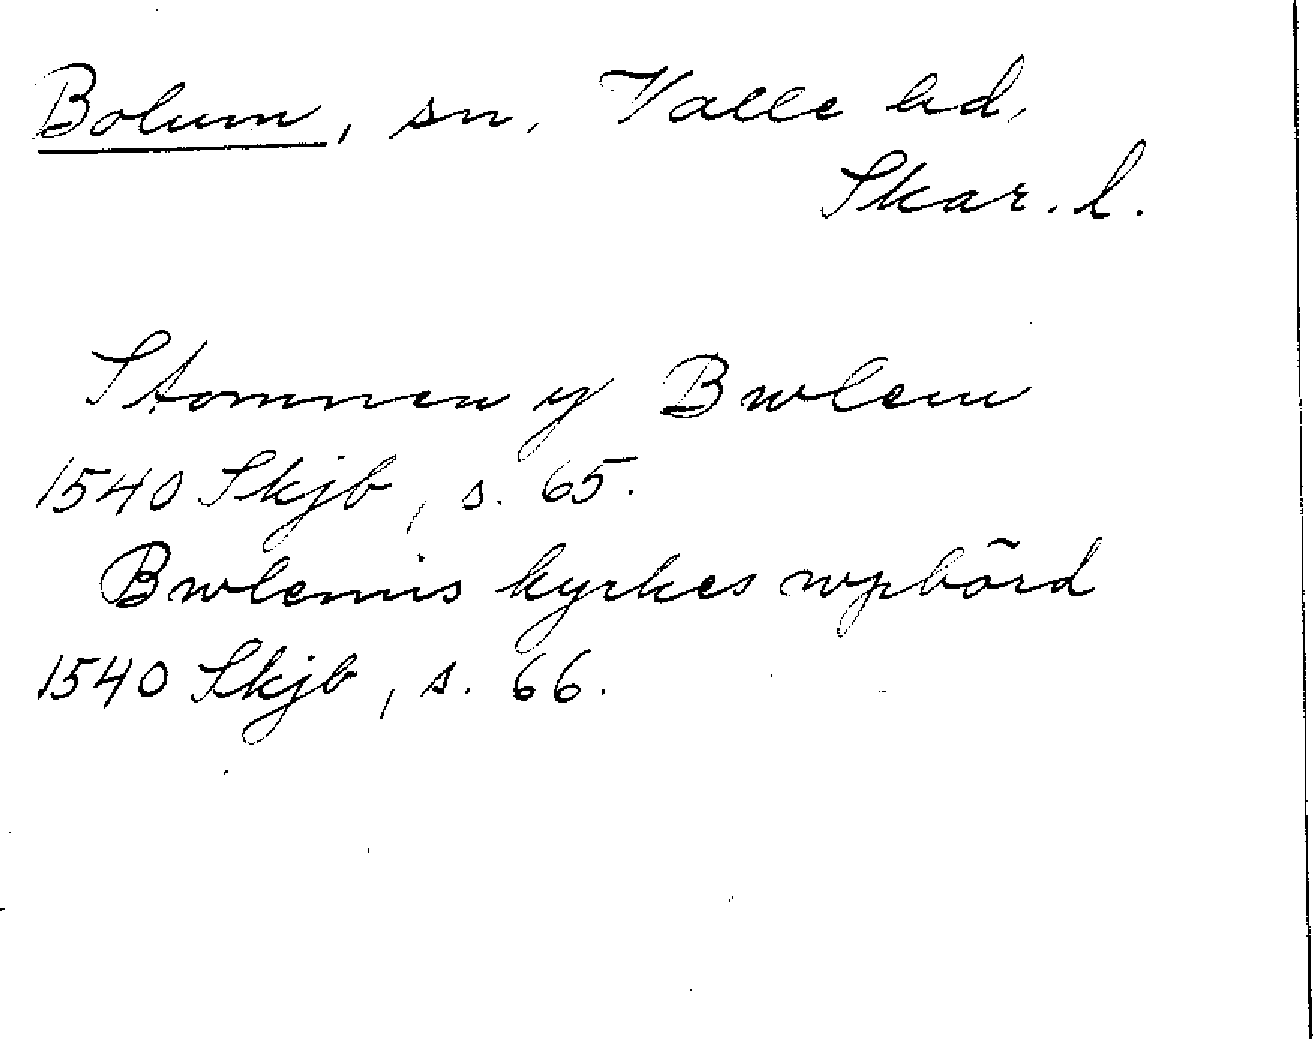 Bolum, sn, Valle hd,
Skar. l.
Stommen y Bwlem
1540 Skjb, s. 65.
Bwlemis kyrkes wpbörd
1540 Skjb, s. 66.